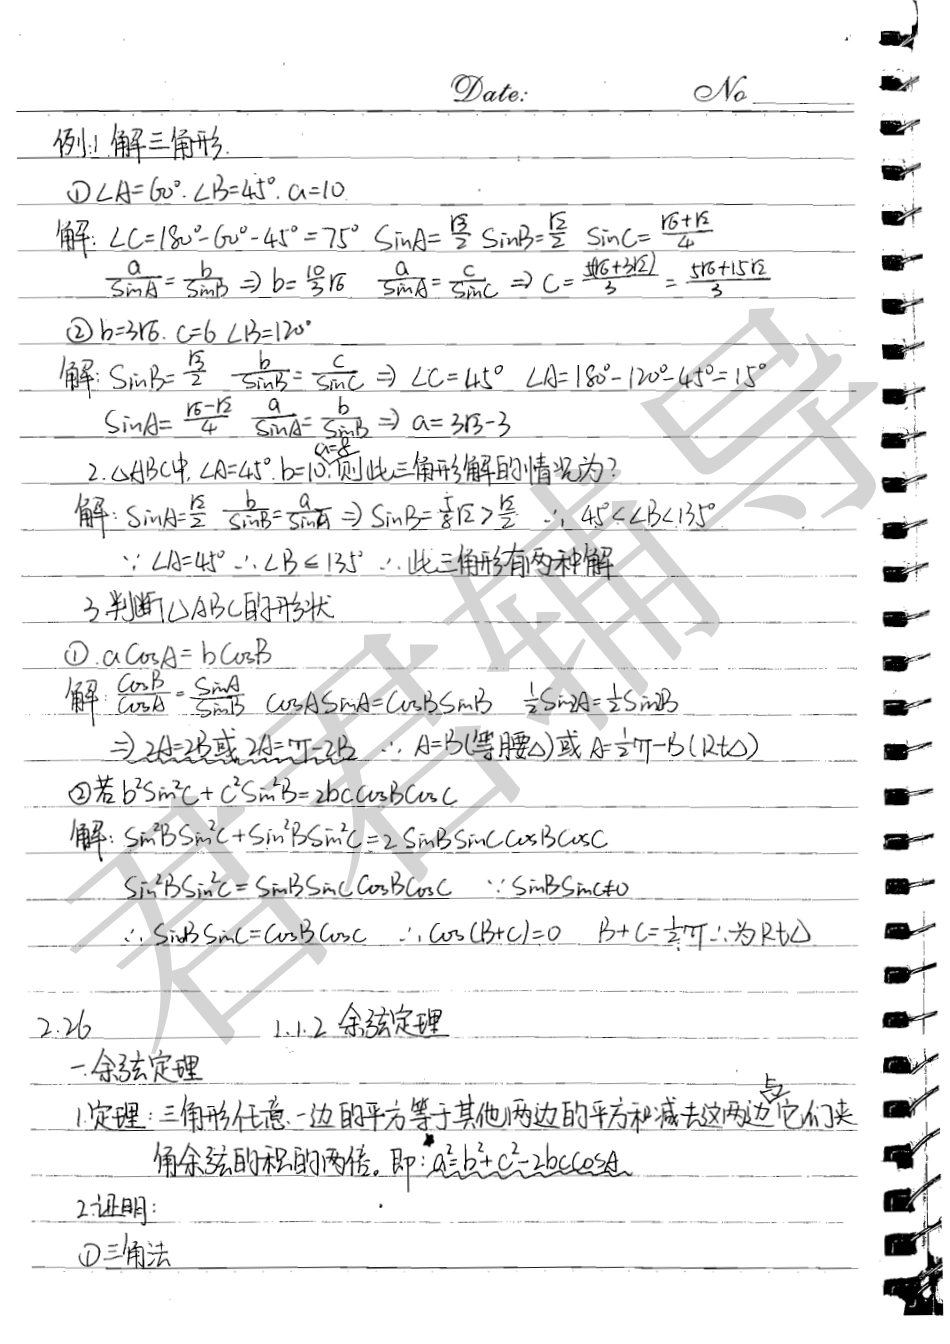 Date: No
例1.解三角形.
①∠A=60°.∠B=45°.a=10.
解:∠C=180°-60°-45°=75° SinA=√3/2 SinB=√2/2 SinC=(√6+√2)/4
a/SinA=b/SinB⇒b=10/3√6 a/SinA=c/SinC⇒C=5(√6+3√2)/3=(5√6+15√2)/3
②b=3√6.c=6 ∠B=120°
解:SinB=√3/2 b/SinB=c/SinC⇒∠C=45° ∠A=180°-120°-45°=15°
SinA=(√6-√2)/4 a/SinA=b/SinB⇒a=3√3-3
2.△ABC中,∠A=45°.b=10.a=8则此三角形解的情况为?
解:SinA=√2/2 b/SinB=a/SinA⇒SinB=5/8√2>√2/2 ∴45°<∠B<135°
∵∠A=45°∴∠B≤135°∴此三角形有两种解
3.判断△ABC的形状
①.aCosA=bCosB
解:CosB/CosA=SinA/SinB CosASinA=CosBSinB ½Sin2A=½Sin2B
⇒2A=2B或2A=π-2B ∴A=B(等腰△)或A=½π-B(Rt△)
②若b²Sin²C+C²Sin²B=2bcCosBCosC
解:Sin²BSin²C+Sin²BSin²C=2SinBSinCCosBCosC
Sin²BSin²C=SinBSinCCosBCosC ∵SinBSinC≠0
∴SinBSinC=CosBCosC ∴Cos(B+C)=0 B+C=½π∴为Rt△
2.26 1.1.2余弦定理
一.余弦定理
1.定理:三角形任意一边的平方等于其他两边的平方和减去这两边与它们夹
角余弦的积的两倍。即:a²=b²+c²-2bcCosA
2.证明:
①三角法
君君辅导